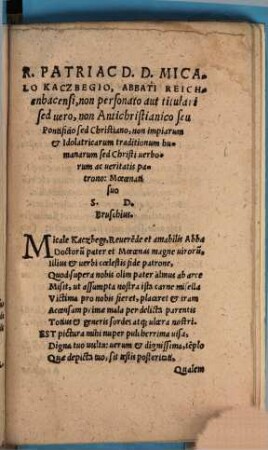 R. PATRI AC D. D. MICA-
LO KACZBEGIO, ABBATI REICH
enbacensi, non personato aut titulari
sed uero, non Antichristianico seu
Pontificio sed Christiano, non impiarum
& Idolatricarum traditionum hu-
manarum sed Christi uerbo-
rum ac ueritatis pa-
trono: Mœcœnati
suo
S. D.
Bruschius.
Micale Kaczbege, Reuerēde et amabilis Abba
Doctorū pater et Mœcœnas magne uirorū,
Illius & uerbi cœlestis fide patrone,
Quod supera nobis olim pater almus ab arce
Misit, ut assumpta nostra ista carne misella
Victima pro nobis fieret, placaret & iram
Accensam prima mala per delicta parentis
Totius & generis sordes atq; ulcera nostri.
EST pictura mihi nuper pulcherrima uisa,
Digna tuo uultu: uerum & dignissima, tēplo
Quæ depicta tuo, sit testis posteritati.
Qualem